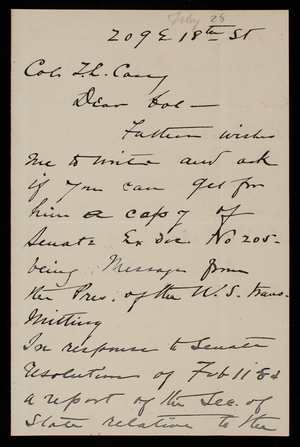 July 28
209 E 18th St
Col. T. L. Casey
Dear Col —
Father wishes
me to write and ask
if you can get for
him a copy of
Senate Ex Doc. No 205-
being Message from
the Pres. of the U.S. trans-
mitting
In response to Senate
Resolution of Feb 11 84
a report of the Sec. of
State relative to the